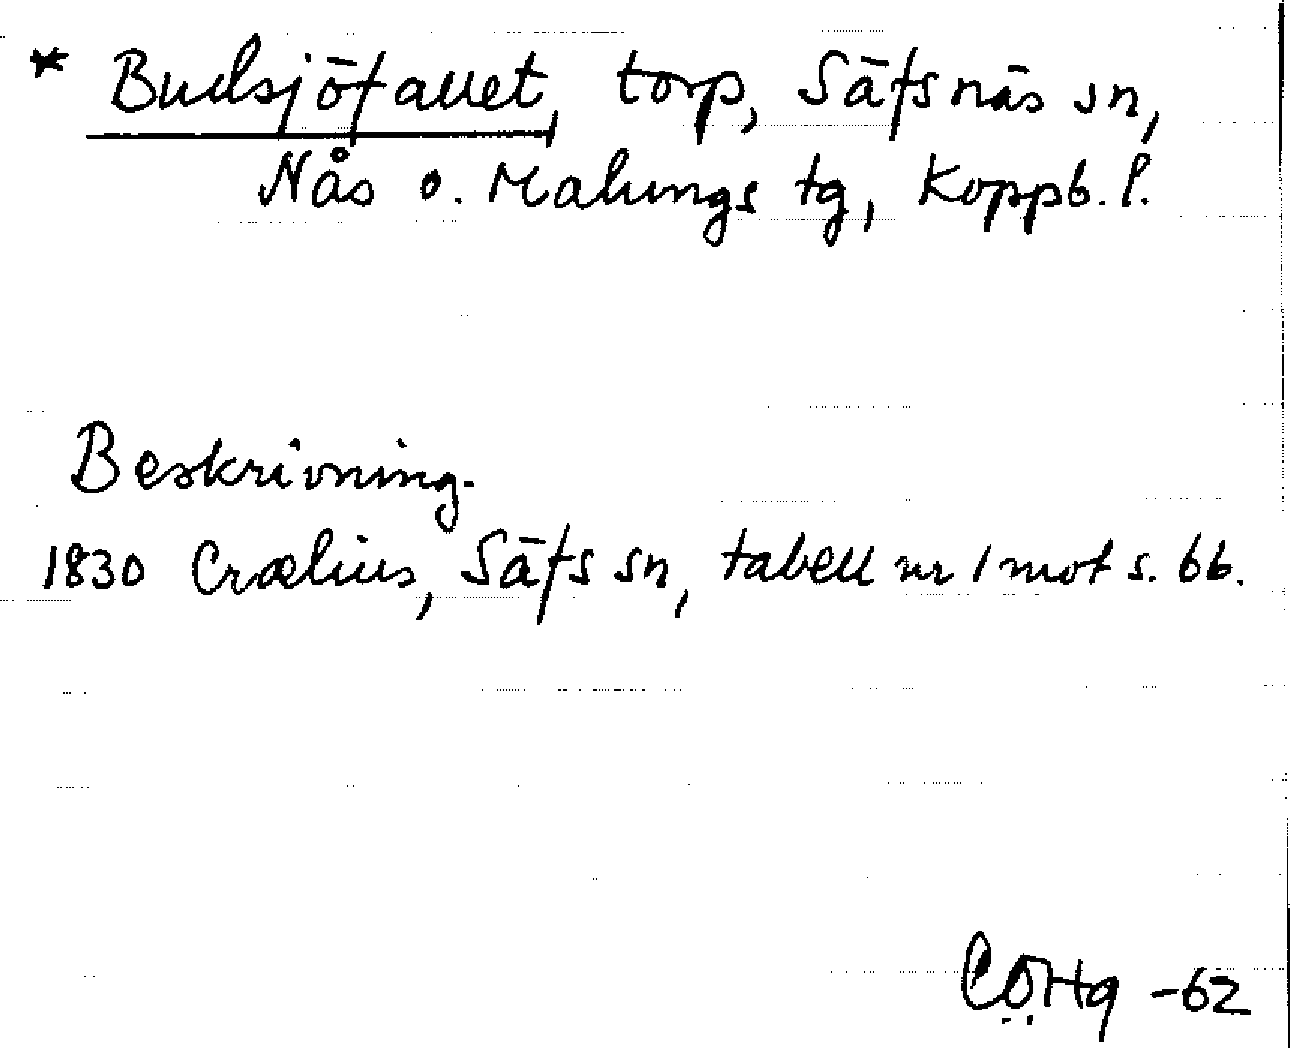 * Budsjöfallet, torp, Säfsnäs sn,
Nås o. Malungs tg, Koppb. l.
Beskrivning.
1830 Crælius, Säfs sn, tabell nr 1 mot s. 66.
-62